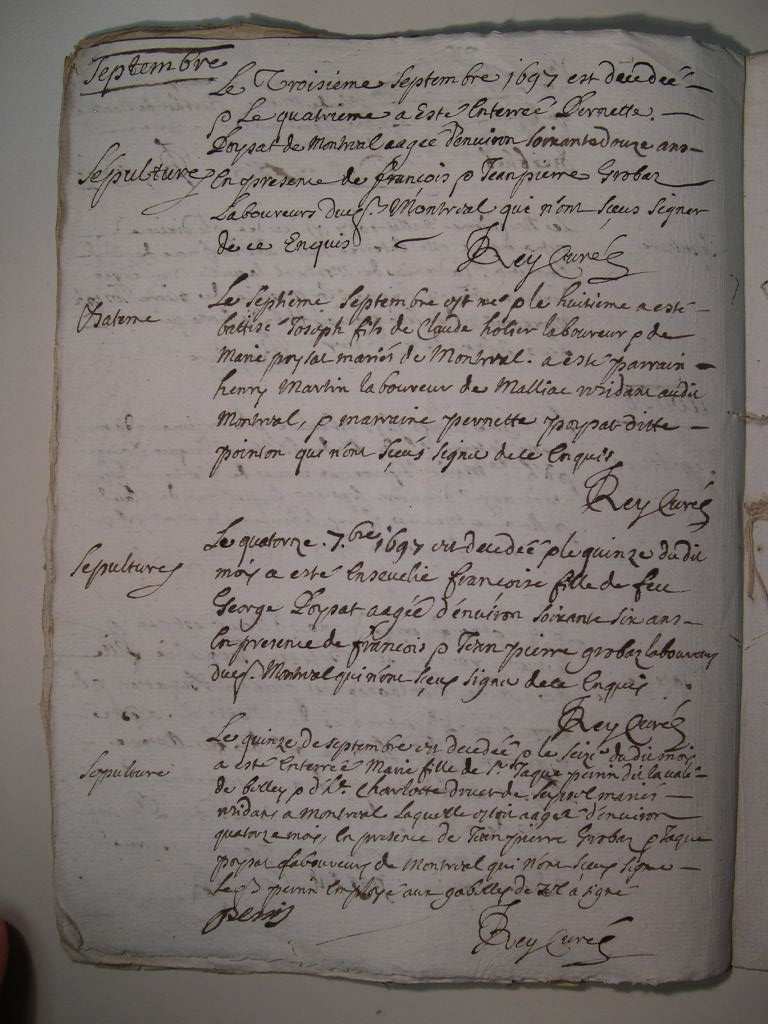 Septembre
Le Troisieme Septembre 1697 est decedeé
& Le quatrieme a Esté Enterreé Pernette
Poysat de Montreal aageé d'environ soixante douze ans
En presence de françois & Jeanpierre Grobaz
Sepultures
Laboureurs dud. Montreal qui n'ont sçeus signer
de ce Enquis
Rey Curé
Batême
Le septieme Septembre est né & le huitieme a esté
battisé Joseph fils de Claude hostier laboureur & de
Marie poysat mariés de Montreal. a esté parrain
henry Martin laboureur de Malliac residant audit
Montreal, & marraine pernette poysat ditte
pointon qui n'ont sçeus signer de ce Enquis
Rey Curé
Sepultures
Le quatorze 7.bre 1697 est decedeé & le quinze dudit
mois a esté Ensevelie françoise fille de feu
George Poysat aageé d'environ soixante six ans
En presence de françois & Jean pierre grobaz laboureurs
dud. Montreal qui n'ont sçeus signer de ce Enquis
Rey Curé
Sepulture
Le quinze de septembre est decedeé & le seize dudit mois
a esté Enterreé Marie fille de Sr. Jaque perrin dit
de belley & d'h. Charlotte de mariés
residans a Montreal Laquelle estoit aageé d'environ
quatorze mois, en presence de Jean pierre Grobaz & Jaque
poysat laboureurs de Montreal qui n'ont sçeus signer
Led. perrin Employé aux gabelles de a signé
perrin
Rey Curé